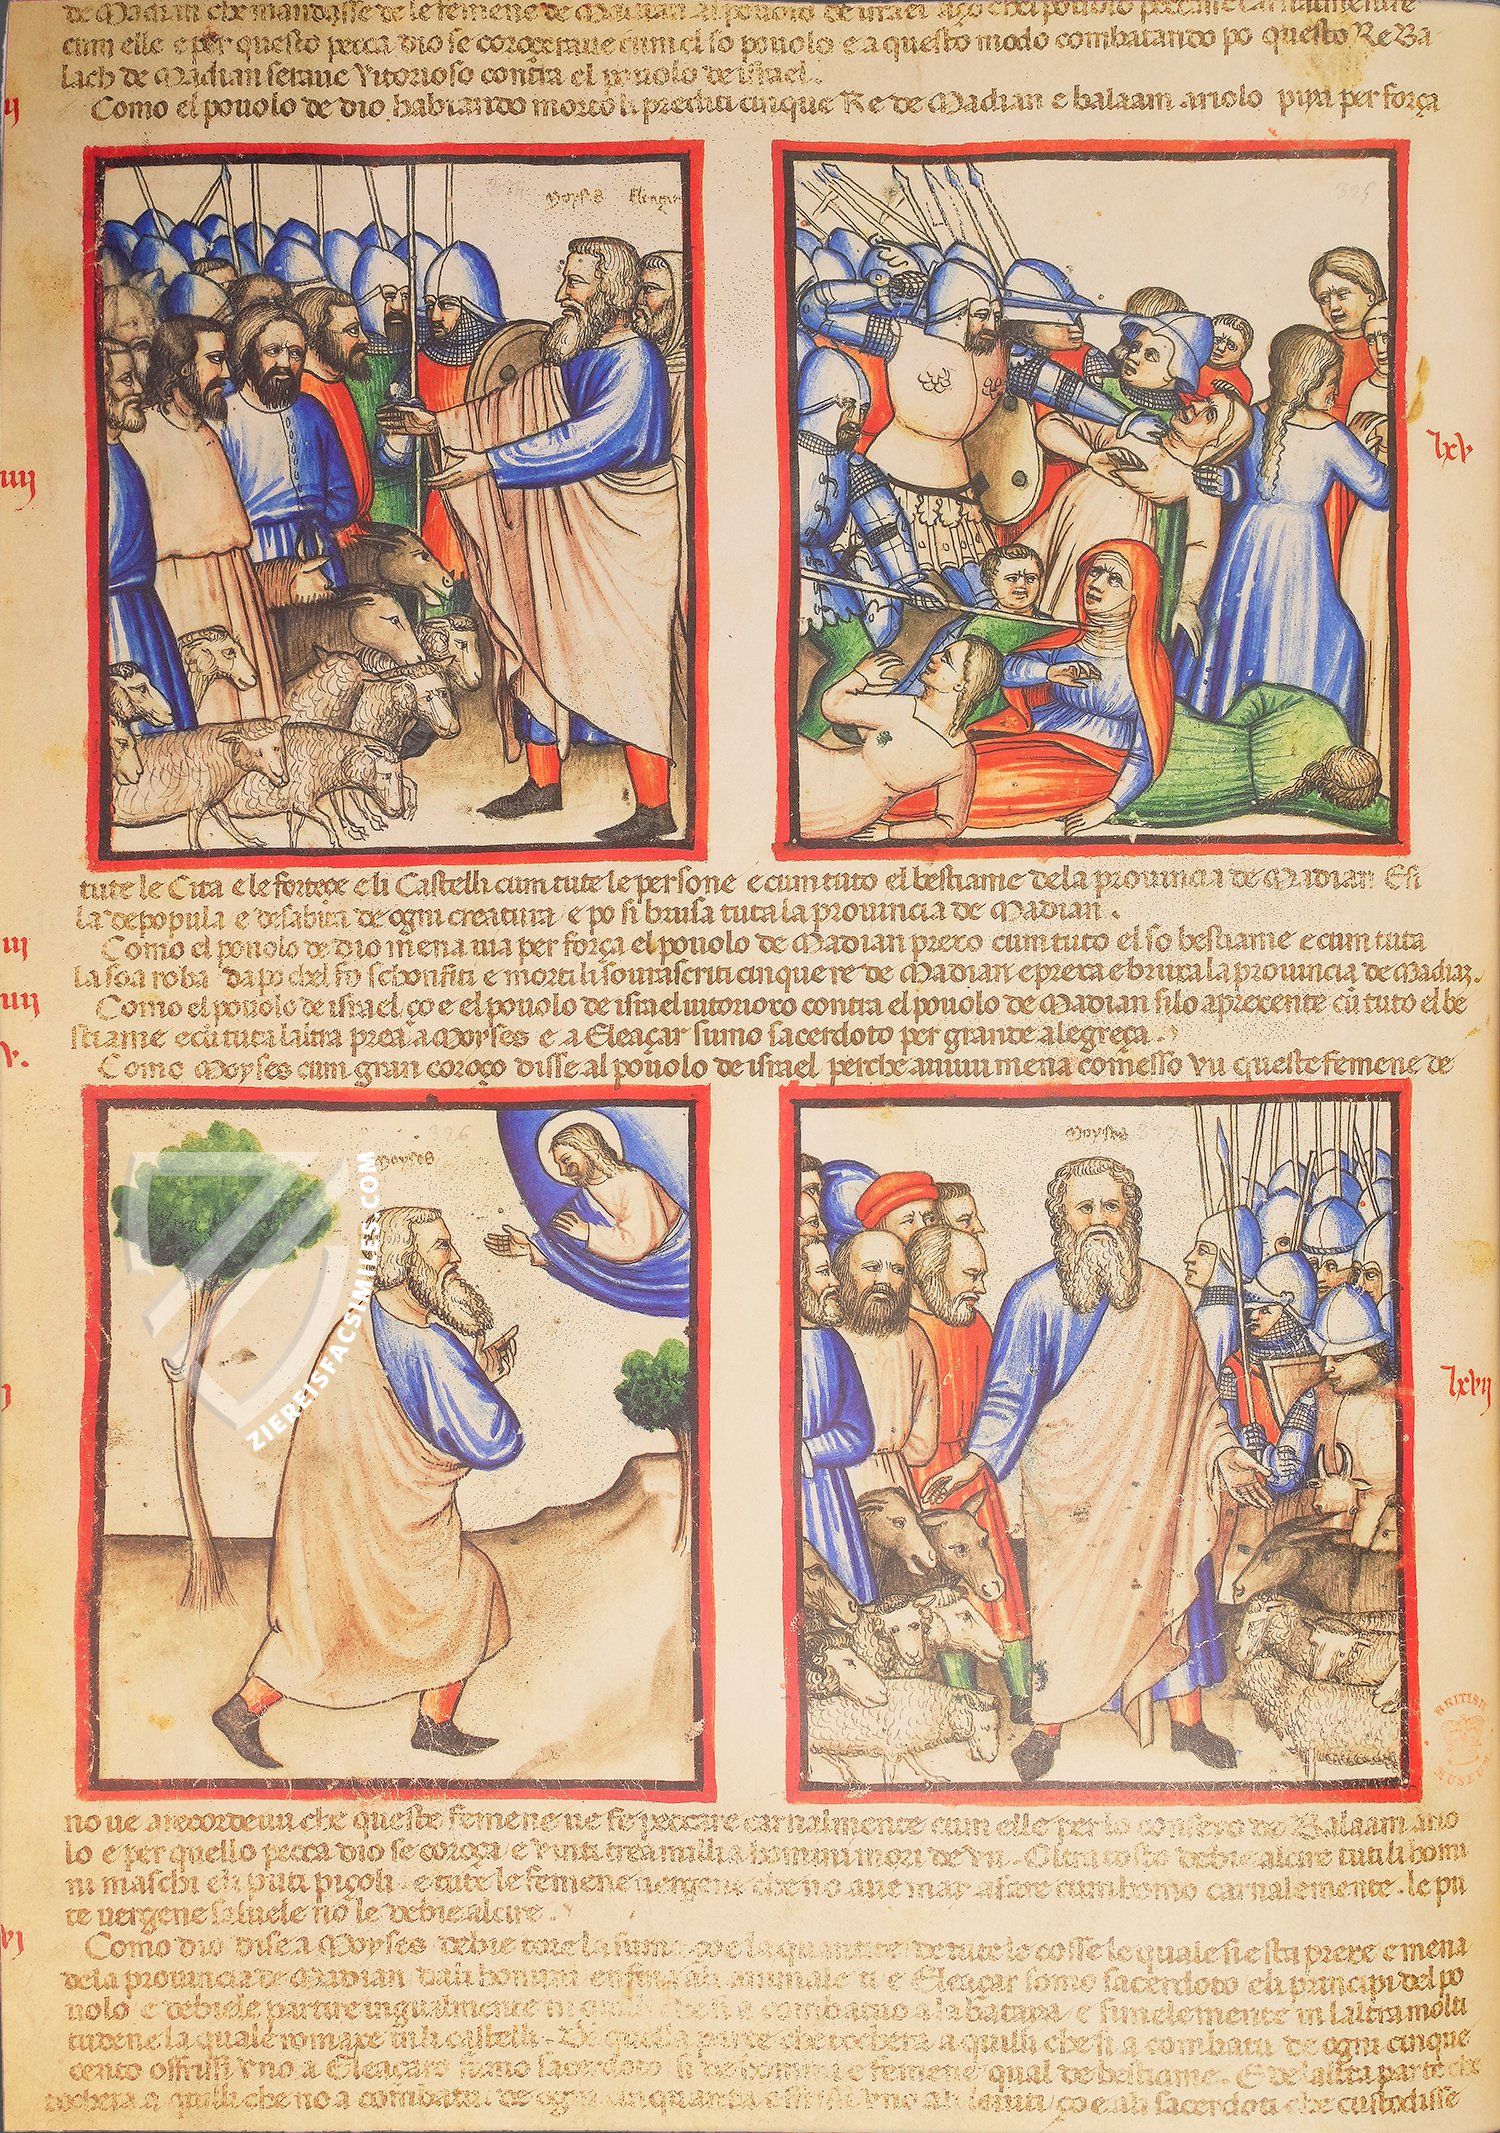 de Madian che mandasse de le femene de Madian al povolo de israel aço chel povolo peccasse carnalmentre
cum elle e per questo pecca dio se coroçerave cum el so povolo e a questo modo combatando po questo Re Ba
lach de Madian serave vitorioso contra el povolo de israel.
Como el povolo de dio habiando morto li prediti cinque Re de Madian e balaam ariolo piya per força
ij
Moyses
iiij
lxv
tute le Cita e le forteçe e li Castelli cum tute le persone e cum tuto el bestiame dela provincia de Madian E si
la depopula e desabita de ogni creatura e po si brusa tuta la provincia de Madian.
iij
Como el povolo de dio mena via per força el povolo de Madian prexo cum tuto el so bestiame e cum tuta
la soa roba dapo chel fo schonfiti e morti li sovrascriti cinque re de Madian e prexa e bruxa la provincia de Madian.
iiij
Como el povolo de israel ço e el povolo de israel vitorioxo contra el povolo de Madian si lo apresente cũ tuto el be
stiame e cũ tuta laltra prea a Moyses e a Eleaçar sumo sacerdoto per grande alegreça.
v.
Como Moyses cum gran coroço disse al povolo de israel perche avivu mena comesso vu queste femene de
326
Moyses
Moyses 327
lxvij
ZIEREISFACSIMILES.COM
BRITISH
MUSEUM
no ve arecordevu che queste femene ve fe peccare carnalmente cum elle per lo conseyo de Balaam ario
lo e per quello pecca dio se coroça e vinti trea millia homini mori de vu. Oltra tosto debie alcire tuti li homi
ni maschi e li puti piçoli e tute le femene vergene che no ave mar afare cum homo carnalemente. le pu
te vergene salvele no le debie alcire.
vj
Como dio dise a Moyses debie tore la suma çoe la quantite de tute le cosse le quale si e sta prexe e mena
dela provincia de Madian dali homini enfina ali animale ti e Eleaçar somo sacerdoto e li principi del po
volo e debiele partire ingualmente in quilli che li a combatuo a la bataya e similemente in laltra molti
tudene la quale romaxe in li castelli. De quella parte che tochera a quilli che si a combatu de ogni cinque
cento offrissi uno a Eleaçaro sumo sacerdoto si de homini e femene qual de bestiame. E de laltra parte che
tochera a quilli che no a combatu de ogni cinquanta offrissi uno ali leviti ço e ali sacerdoti che custodisse